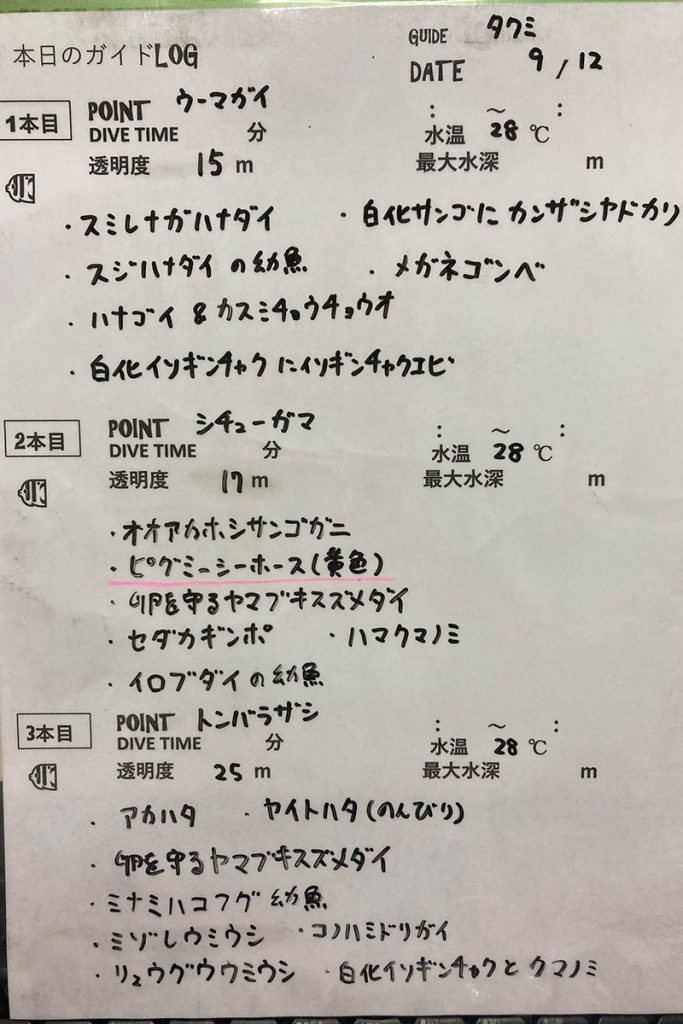 本日のガイドLOG
GUIDE タクミ
DATE 9/12
1本目 POINT ウーマガイ : ～ :
DIVE TIME 分 水温 28℃
透明度 15m 最大水深 m
・スミレナガハナダイ ・白化サンゴに カンザシヤドカリ
・スジハナダイ の幼魚 ・メガネゴンベ
・ハナゴイ & カスミチョウチョウオ
・白化イソギンチャク にイソギンチャクエビ
2本目 POINT シチューガマ : ～ :
DIVE TIME 分 水温 28℃
透明度 17m 最大水深 m
・オオアカホシサンゴガニ
・ピグミーシーホース(黄色)
・卵を守るヤマブキスズメダイ
・セダカギンポ ・ハマクマノミ
・イロブダイの幼魚
3本目 POINT トンバラザシ : ～ :
DIVE TIME 分 水温 28℃
透明度 25m 最大水深 m
・アカハタ ・ヤイトハタ(のんびり)
・卵を守るヤマブキスズメダイ
・ミナミハコフグ 幼魚
・ミゾレウミウシ ・コノハミドリガイ
・リュウグウウミウシ ・白化イソギンチャクと クマノミ